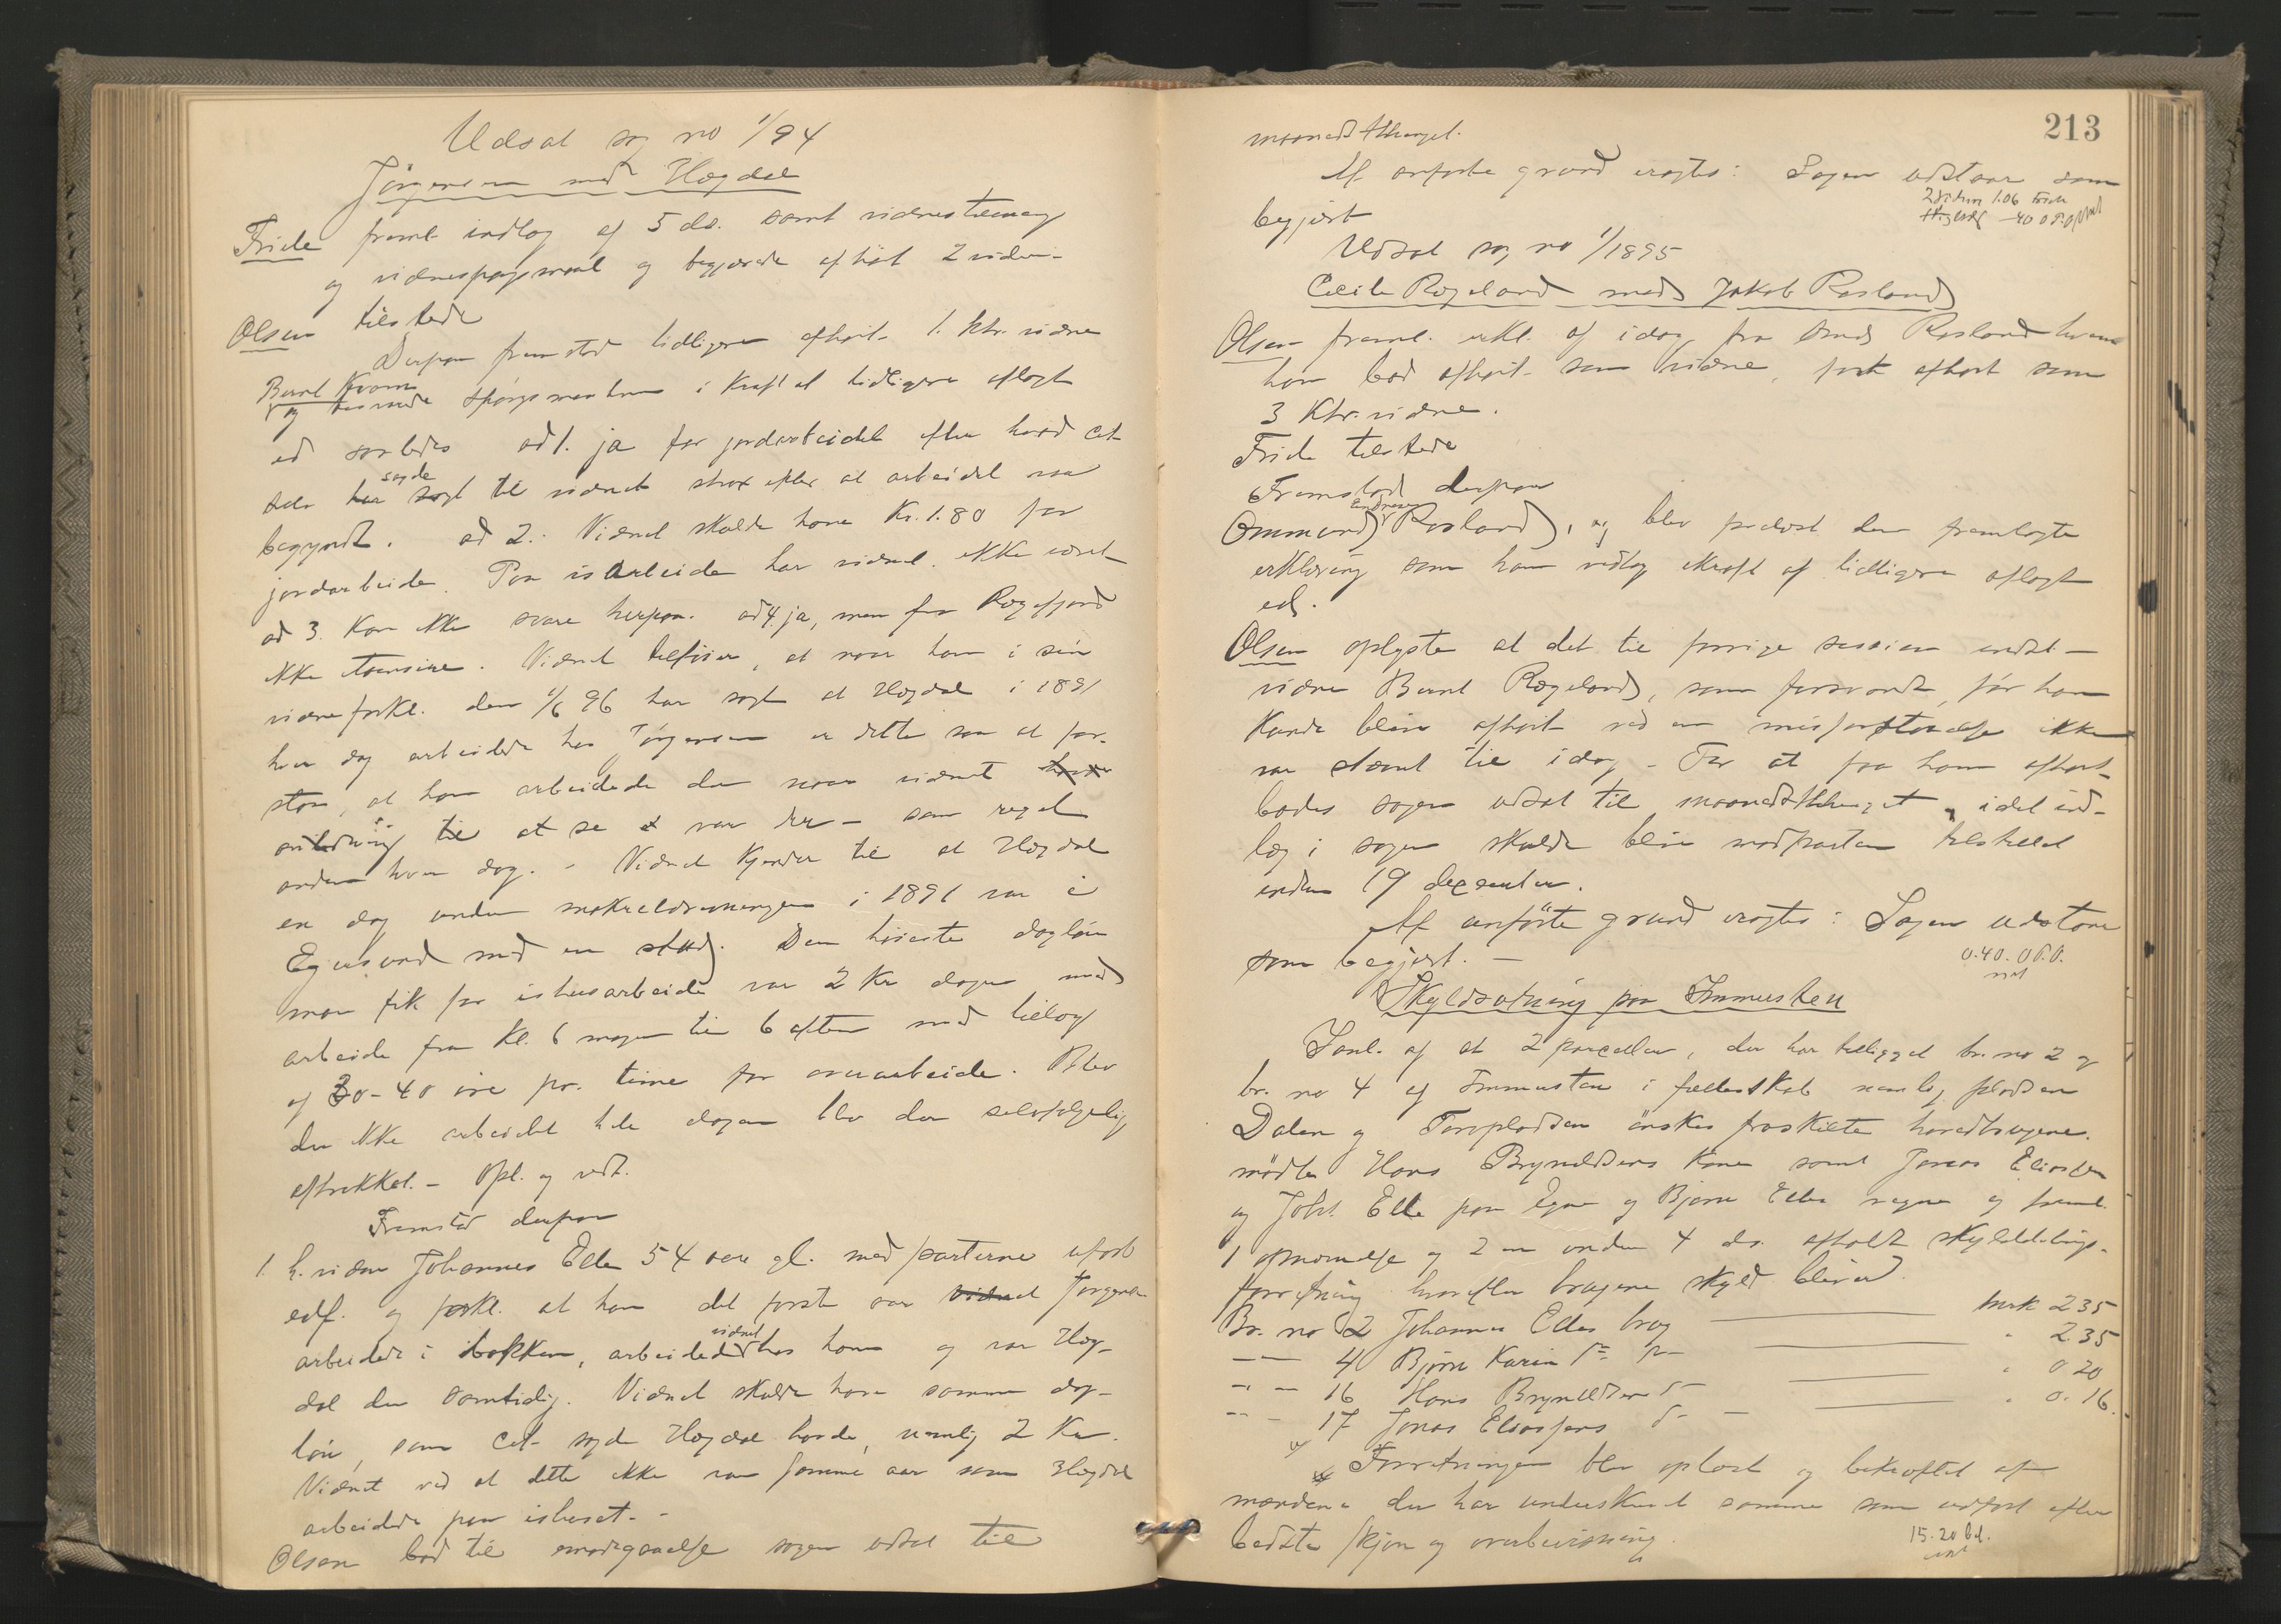 Udsat sag no 1/94
Jörgensen mod Hegdal
Friele freml. indlæg af 5 ds. samt vidnestævning
og vidnespørgsmaal og begjærede afhört 2 vidner
Olsen tilstede
Derpaa fremstod tidligere afhørt 1. ktr. vidne
Bernt Kvam
og besvarede spørgsmaalene i kraft af tidligere aflagt
ed saaledes ad 1. ja for jordarbeidet efter hvad cit-
sagde
til vidnet strax efter at arbeidet var
begyndt. ad 2. Vidnet skulde have Kr. 1.80 for
jordarbeide. Paa isarbeide har vidnet ikke været
ad 3. Kan ikke svare herpaa. ad 4. ja, men for Rægefjord
ikke . Vidnet tilföier, at naar han i sin
vidneforkl. den 1/6 96 har sagt at Hegdal i 1891
hver dag arbeidede hos Jörgensen er dette saa at for-
staa, at han arbeidede der naar vidnet
anledning til at se var der - som regel
anden hver dag. - Vidnet kjender til at Hegdal
en dag under makreldrivningen i 1891 var i
Egersund med en stud. Den höieste daglön
man fik for ishusarbeide var 2 Kr dagen med
arbeide fra Kl. 6 morgen til 6 aften med tillæg
af 30-40 öre pr. time for overarbeide. Blev
der ikke arbeidet hele dagen blev der selvfølgelig
aftrukket. - Opl. og vedt.
Fremstod derpaa
1. h. vidne Johannes Elle 54 aar gl. med parterne ubesl.
edf. og forkl. at han det første aar Jörgensen
vidnet
arbeidede i bakken, arbeidede hos ham og var Heg-
dal der samtidig. Vidnet skulde have samme dag-
lön, som cit- sagde Hegdal havde, nemlig 2 Kr.
Vidnet ved at dette ikke var samme aar som Hegdal
arbeidede paa ishuset. -
Olsen bad til imødegaaelse sagen udsat til
213
maanedsthinget.
Af anførte grund eragtes: Sagen udstaar som
begjært
2 vidner 1.06
40
Udsat sag no 1/1895
Cecilie Rægeland mod Jakob Rosland
Olsen freml. erkl. af idag fra Omund Rosland hvem
han bad afhørt som vidne, først afhørt som
3 Ktr. vidne.
Friele tilstede
Fremstod derpaa
Endresen
Ommund Rosland, og blev forelæst den fremlagte
erklæring som han vedtog i kraft af tidligere aflagt
ed.
Olsen oplyste at det til forrige session indst-
vidne Bernt Rægeland, som forsvandt, før han
kunde blive afhört ved en misforstaaelse ikke
var stævnt til idag - For at faa ham afhørt
bades sagen udsat til maanedsthinget, idet ind-
læg i sagen skulde blive modparten tilstillet
inden 19 december.
Af anførte grund eragtes: Sagen udstaar
som begjært. -
0.40. O.P.O.
Skyldsætning paa Immersten
Janl. af at 2 parceller, der har tilligget br. no 2 og
br. no 4 af Immersten i fællesskab nemlig pladsen
Dalen og Torvpladsen önskes fraskilte hovedbrugene.
mödte Hans Bryneldsens kone samt Jonas Eliassen
og Johs. Elle paa egne og Bjørn Elles vegne og freml.
1 opnævnelse og 2 en under 4 ds. afholdt skylddelings-
forretning hvorefter brugene skyld bliver
Br. no 2 Johannes Elles brug mrk 2 35
— 4 Björn Karin ds. br. " 2 35
— — 16 Hans Bryneldsen ds " 0 20
— — 17 Jonas Eliassens ds - " 0. 16.
Forretningen blev oplæst og bekræftet af
mændene der har underskrevet samme som udført efter
bedste skjøn og overbevisning
15. 20 bet.